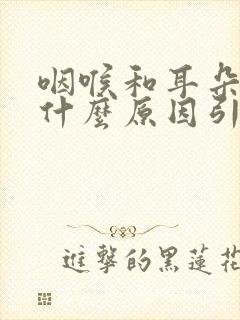 咽喉和耳朵
什麼原因引
進擊的黑蓮花